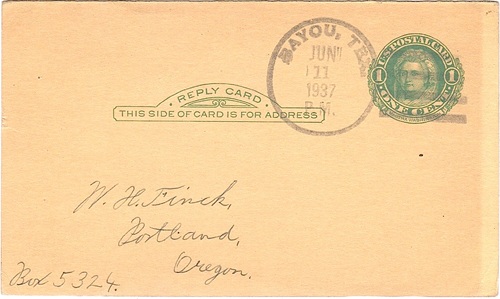 BAYOU, TEX
JUN
11
1937
P.M.
U.S. POSTAL CARD
1 1
ONE CENT
REPLY CARD
THIS SIDE OF CARD IS FOR ADDRESS
W. H. Finck,
Portland,
Oregon.
Box 5324.